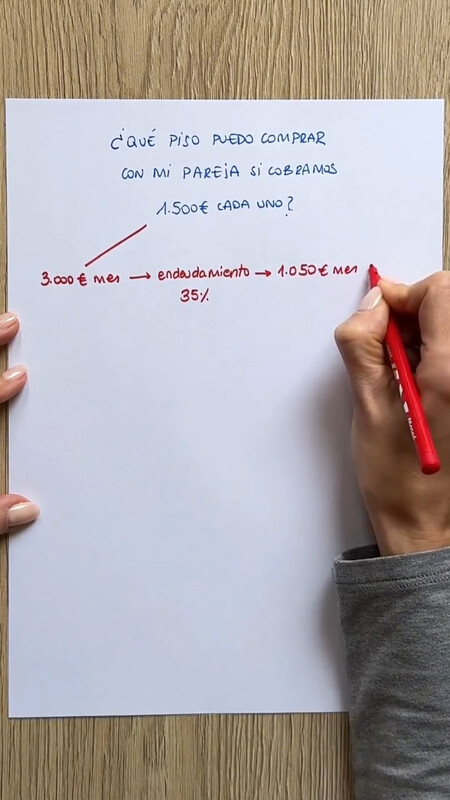 ¿QUÉ PISO PUEDO COMPRAR
CON MI PAREJA SI COBRAMOS
1.500€ CADA UNO?
3.000€ mes → endeudamiento → 1.050€ mes
35%